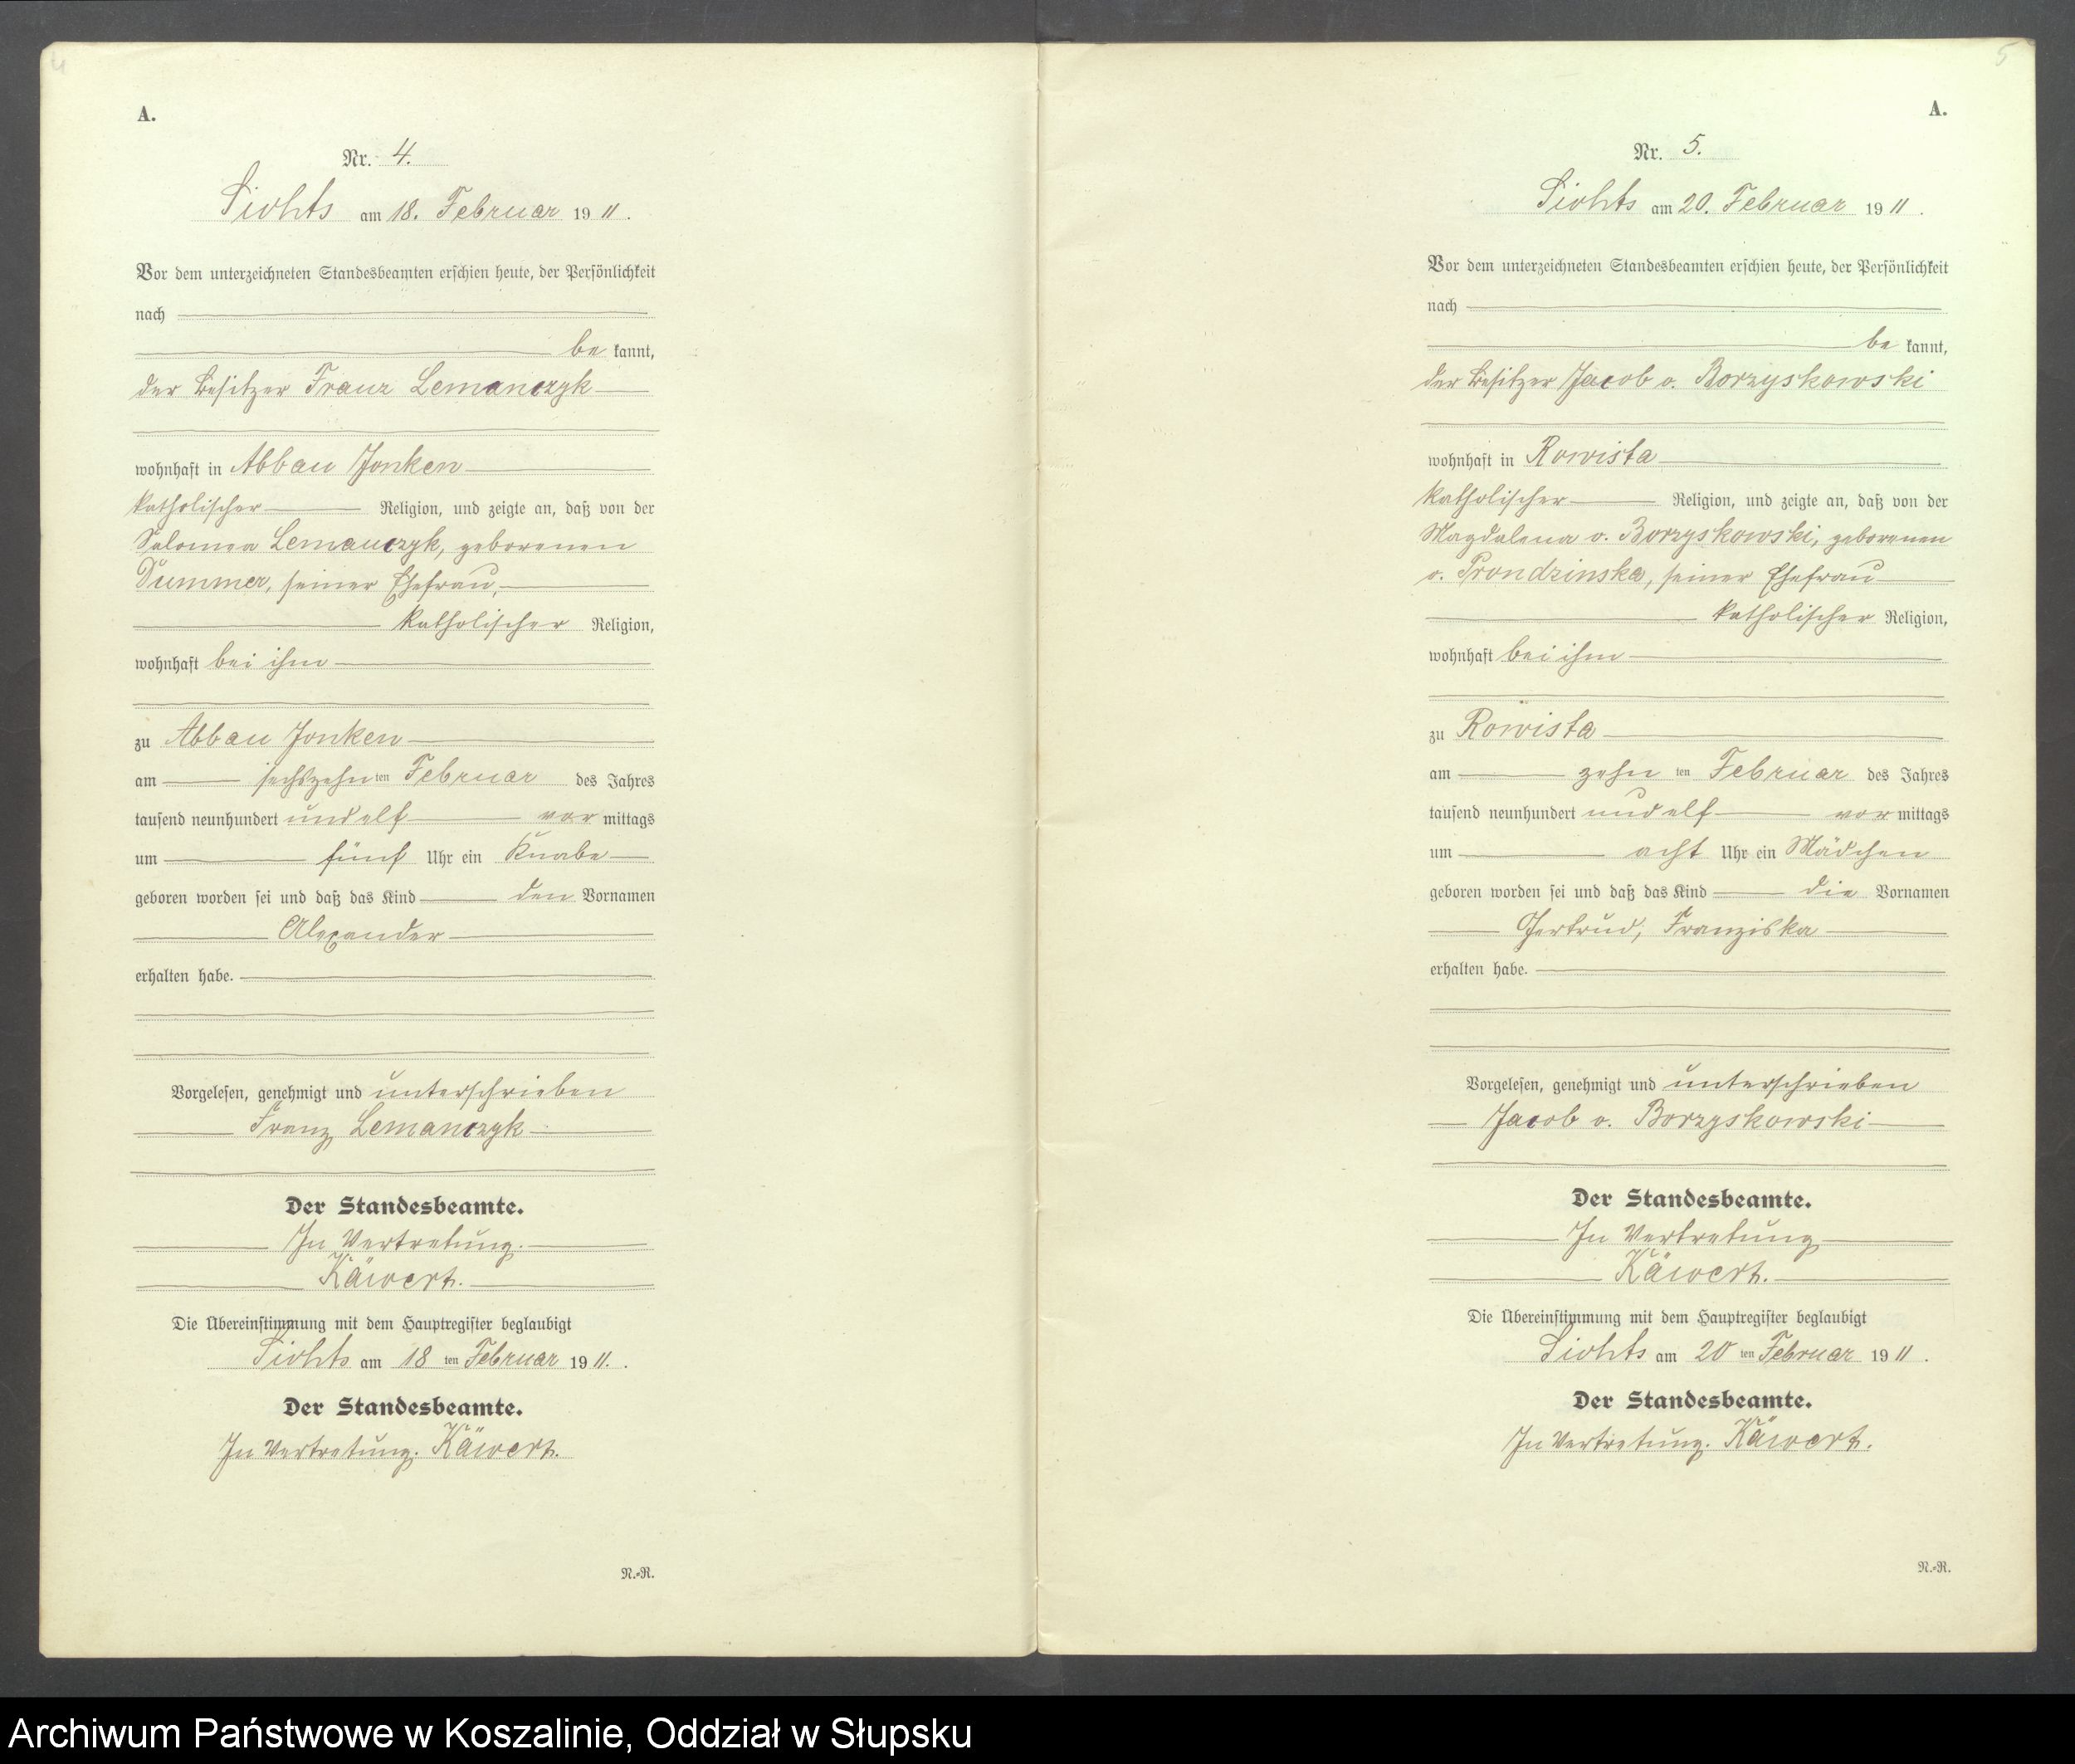 4
A.
Nr. 4.
Liohts am 18. Februar 1911.
Vor dem unterzeichneten Standesbeamten erschien heute, der Persönlichkeit
nach
be kannt,
der Besitzer Franz Lemanczyk
wohnhaft in Abbau Jonken
katholischer Religion, und zeigte an, daß von der
Salomea Lemanczyk, geborenen
Dummer, seiner Ehefrau,
katholischer Religion,
wohnhaft bei ihm
zu Abbau Jonken
am sechszehn ten Februar des Jahres
tausend neunhundert und elf vor mittags
um fünf Uhr ein Knabe
geboren worden sei und daß das Kind den Vornamen
Alexander
erhalten habe.
Vorgelesen, genehmigt und unterschrieben
Franz Lemanczyk
Der Standesbeamte.
In Vertretung.
Käwert.
Die Übereinstimmung mit dem Hauptregister beglaubigt
Liohts am 18 ten Februar 1911.
Der Standesbeamte.
In Vertretung. Käwert.
N.-R.
5
A.
Nr. 5.
Liohts am 20. Februar 1911.
Vor dem unterzeichneten Standesbeamten erschien heute, der Persönlichkeit
nach
be kannt,
der Besitzer Jacob v. Borzyskowski
wohnhaft in Rowista
katholischer Religion, und zeigte an, daß von der
Magdalena v. Borzyskowski, geborenen
v. Prondzinska, seiner Ehefrau
katholischer Religion,
wohnhaft bei ihm
zu Rowista
am zehn ten Februar des Jahres
tausend neunhundert und elf vor mittags
um acht Uhr ein Mädchen
geboren worden sei und daß das Kind die Vornamen
Gertrud, Franziska
erhalten habe.
Vorgelesen, genehmigt und unterschrieben
Jacob v. Borzyskowski
Der Standesbeamte.
In Vertretung
Käwert.
Die Übereinstimmung mit dem Hauptregister beglaubigt
Liohts am 20 ten Februar 1911.
Der Standesbeamte.
In Vertretung. Käwert.
N.-R.
Archiwum Państwowe w Koszalinie, Oddział w Słupsku